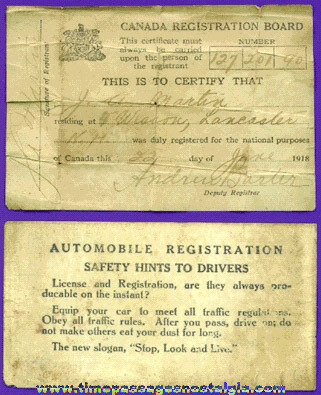 CANADA REGISTRATION BOARD
This certificate must
always be carried
upon the person of
the registrant
NUMBER
127 201 90
THIS IS TO CERTIFY THAT
Martin
residing at Lancaster
was duly registered for the national purposes
of Canada this 22 day of June 1918
Deputy Registrar
Signature of Registrant
AUTOMOBILE REGISTRATION
SAFETY HINTS TO DRIVERS
License and Registration, are they always pro-
ducable on the instant?
Equip your car to meet all traffic regulations.
Obey all traffic rules. After you pass, drive on; do
not make others eat your dust for long.
The new slogan, "Stop, Look and Live."
www.timepassagesnostalgia.com